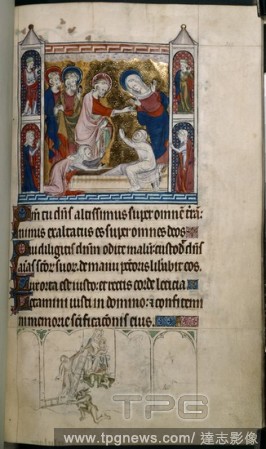 Qm tu dns altissimus super omnē trā:
nimis exaltatus es super omnes deos
Qui diligitis dnm odite malū: custod dns
aīas scor suor: de manu pctoris libabit eos.
Lux orta est iusto: et rectis corde leticia
Letamini iusti in domino: et confitemi
ni memorie scificaconis eius.
TPG
www.tpgnews.com / 達志影像